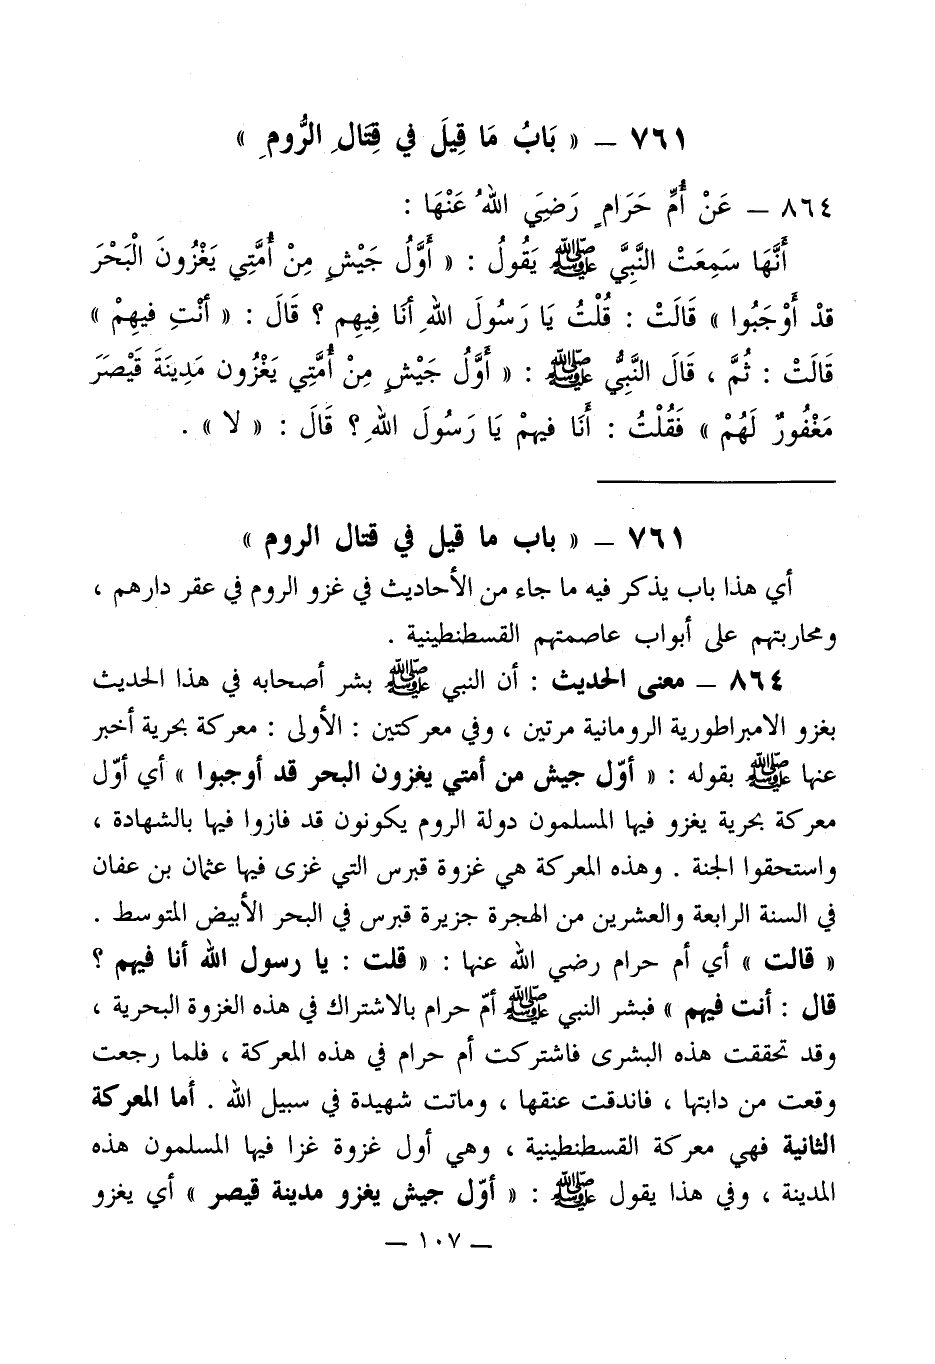 ٧٦١ – « بَابُ مَا قِيلَ في قِتَالِ الرُّومِ »
٨٦٤ – عَنْ أُمِّ حَرَامٍ رَضِيَ اللهُ عَنْهَا :
أَنَّهَا سَمِعَتْ النَّبِيَّ ﷺ يَقُولُ : « أَوَّلُ جَيْشٍ مِنْ أُمَّتِي يَغْزُونَ الْبَحْرَ
قَدْ أَوْجَبُوا » قَالَتْ : قُلْتُ يَا رَسُولَ اللهِ أنَا فِيهِم ؟ قَالَ : « أنْتِ فِيهِمْ »
قَالَتْ : ثُمَّ ، قَالَ النَّبِيُّ ﷺ : « أَوَّلُ جَيْشٍ مِنْ أُمَّتِي يَغْزُون مَدِينَةَ قَيْصَرَ
مَغْفُورٌ لَهُمْ » فَقُلْتُ : أَنَا فيهِمْ يَا رَسُولَ اللهِ ؟ قَالَ : « لا » .
٧٦١ – « باب ما قيل في قتال الروم »
أي هذا باب يذكر فيه ما جاء من الأحاديث في غزو الروم في عقر دارهم ،
ومحاربتهم على أبواب عاصمتهم القسطنطينية .
٨٦٤ – معنى الحديث : أن النبي ﷺ بشر أصحابه في هذا الحديث
بغزو الامبراطورية الرومانية مرتين ، وفي معركتين : الأولى : معركة بحرية أخبر
عنها ﷺ بقوله : « أوّل جيش من أمتي يغزون البحر قد أوجبوا » أي أوّل
معركة بحرية يغزو فيها المسلمون دولة الروم يكونون قد فازوا فيها بالشهادة ،
واستحقوا الجنة . وهذه المعركة هي غزوة قبرس التي غزى فيها عثمان بن عفان
في السنة الرابعة والعشرين من الهجرة جزيرة قبرس في البحر الأبيض المتوسط .
« قالت » أي أم حرام رضي الله عنها : « قلت : يا رسول الله أنا فيهم ؟
قال : أنت فيهم » فبشر النبي ﷺ أمّ حرام بالاشتراك في هذه الغزوة البحرية ،
وقد تحققت هذه البشرى فاشتركت أم حرام في هذه المعركة ، فلما رجعت
وقعت من دابتها ، فاندقت عنقها ، وماتت شهيدة في سبيل الله . أما المعركة
الثانية فهي معركة القسطنطينية ، وهي أول غزوة غزا فيها المسلمون هذه
المدينة ، وفي هذا يقول ﷺ : « أوّل جيش يغزو مدينة قيصر » أي يغزو
– ١٠٧ –